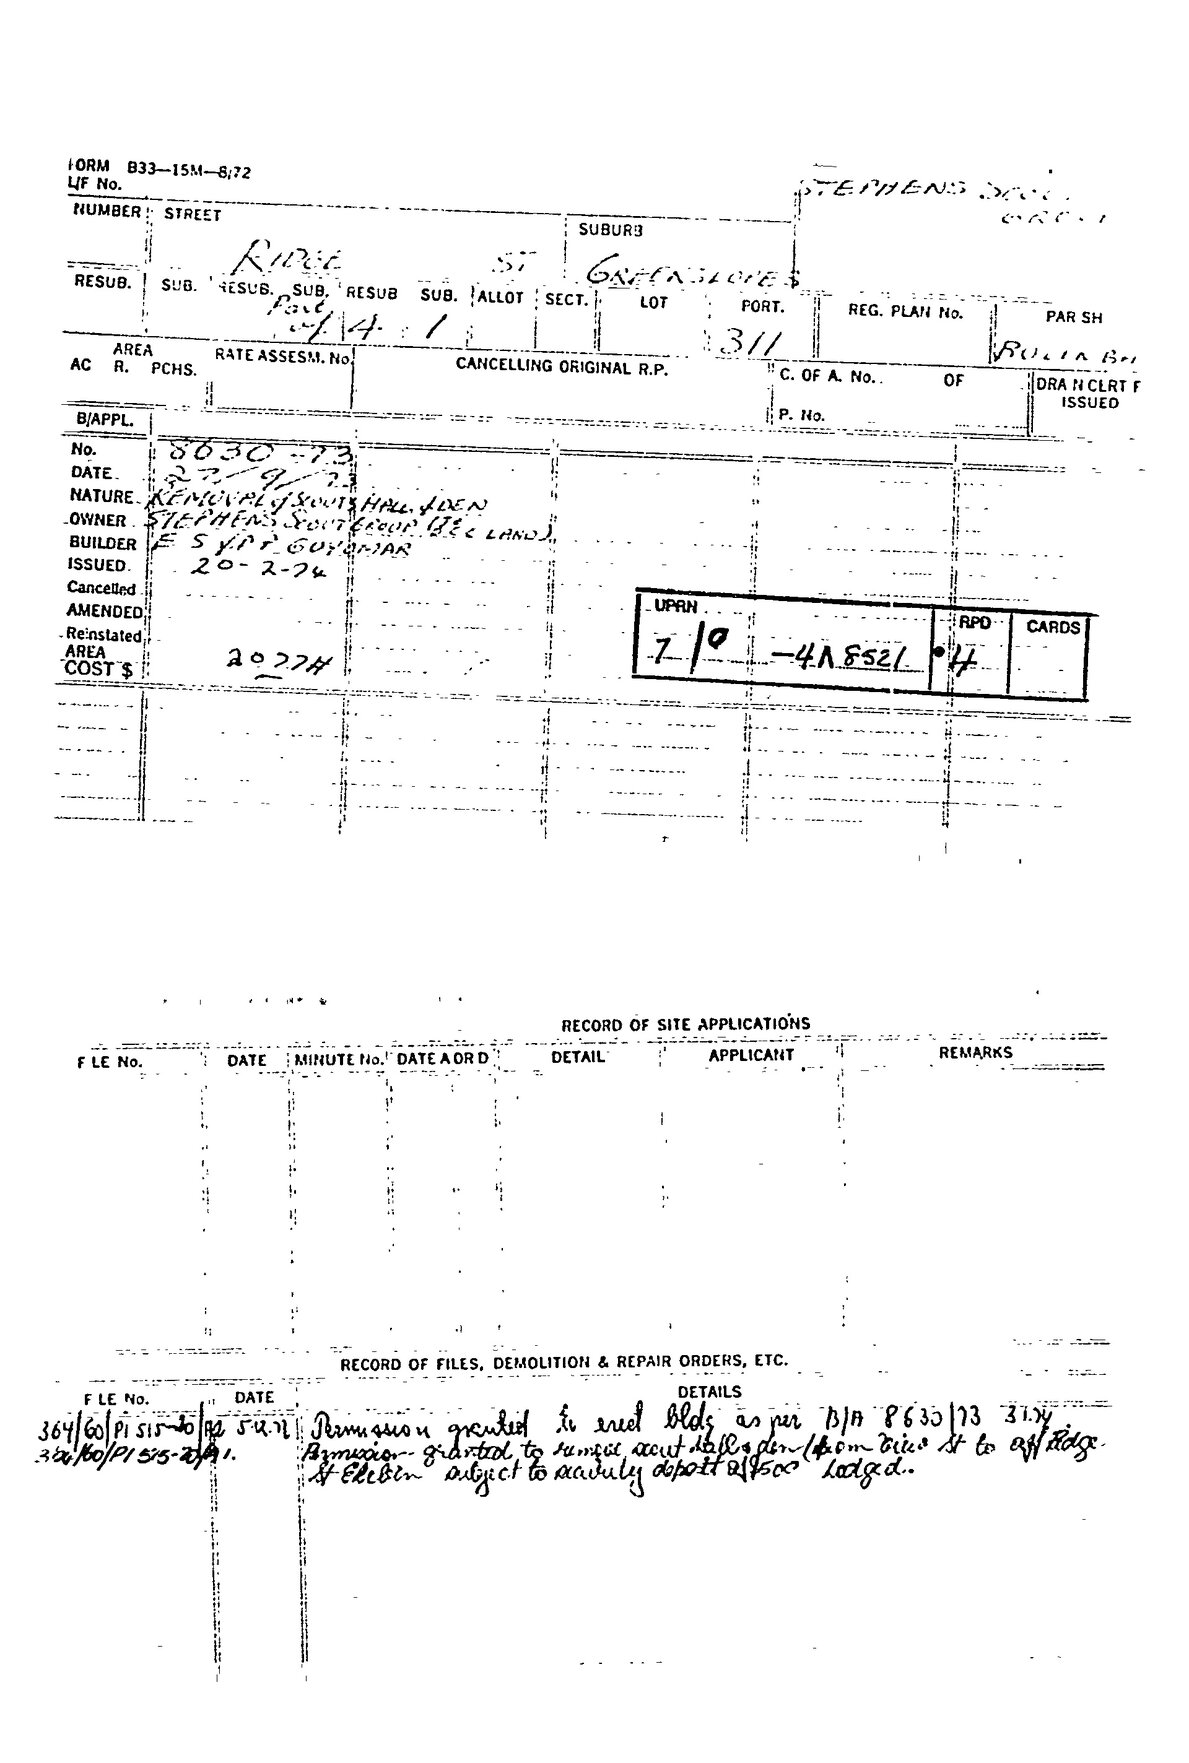 FORM B33—15M—8/72
L/F No.
STEPHENS SCOUT
GROUP
NUMBER STREET SUBURB
RIDGE ST GREENSLOPES
RESUB. SUB. RESUB. SUB. RESUB SUB. ALLOT SECT. LOT PORT. REG. PLAN No. PAR SH
Part
of 4 1 311
AREA RATE ASSESM. No. CANCELLING ORIGINAL R.P. C. OF A. No. OF DRA N CERT F
AC R. PCHS. ISSUED
P. No.
B/APPL.
No. 8630-73
DATE 27/9/73
NATURE REMOVAL of SCOUTS HALL & DEN
OWNER STEPHENS SCOUT GROUP LAND)
BUILDER E S GUYOMAR
ISSUED. 20-2-74
Cancelled
AMENDED
Reinstated
AREA
COST $ 2077H
UPRN RPD CARDS
7/0 -4A8521 • H
RECORD OF SITE APPLICATIONS
F LE No. DATE MINUTE No. DATE A OR D DETAIL APPLICANT REMARKS
RECORD OF FILES, DEMOLITION & REPAIR ORDERS, ETC.
F LE No. DATE DETAILS
364/60/P1 515-20/ Permission granted to erect bldg as per B/A 8630/73
Permission granted to remove scout hall & den from St to off Ridge
St subject to security deposit of $500 lodged..